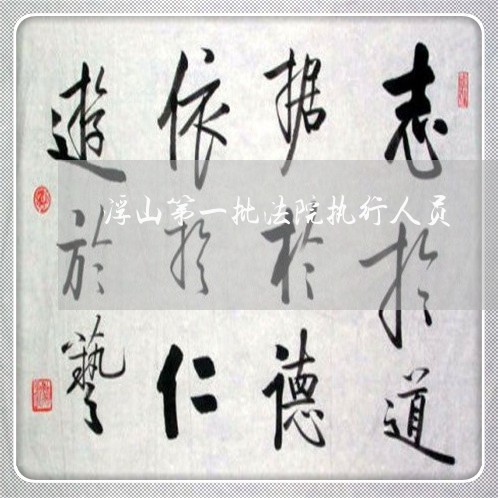 志於道
据於德
依於仁
遊於藝
浮山第一批法院执行人员